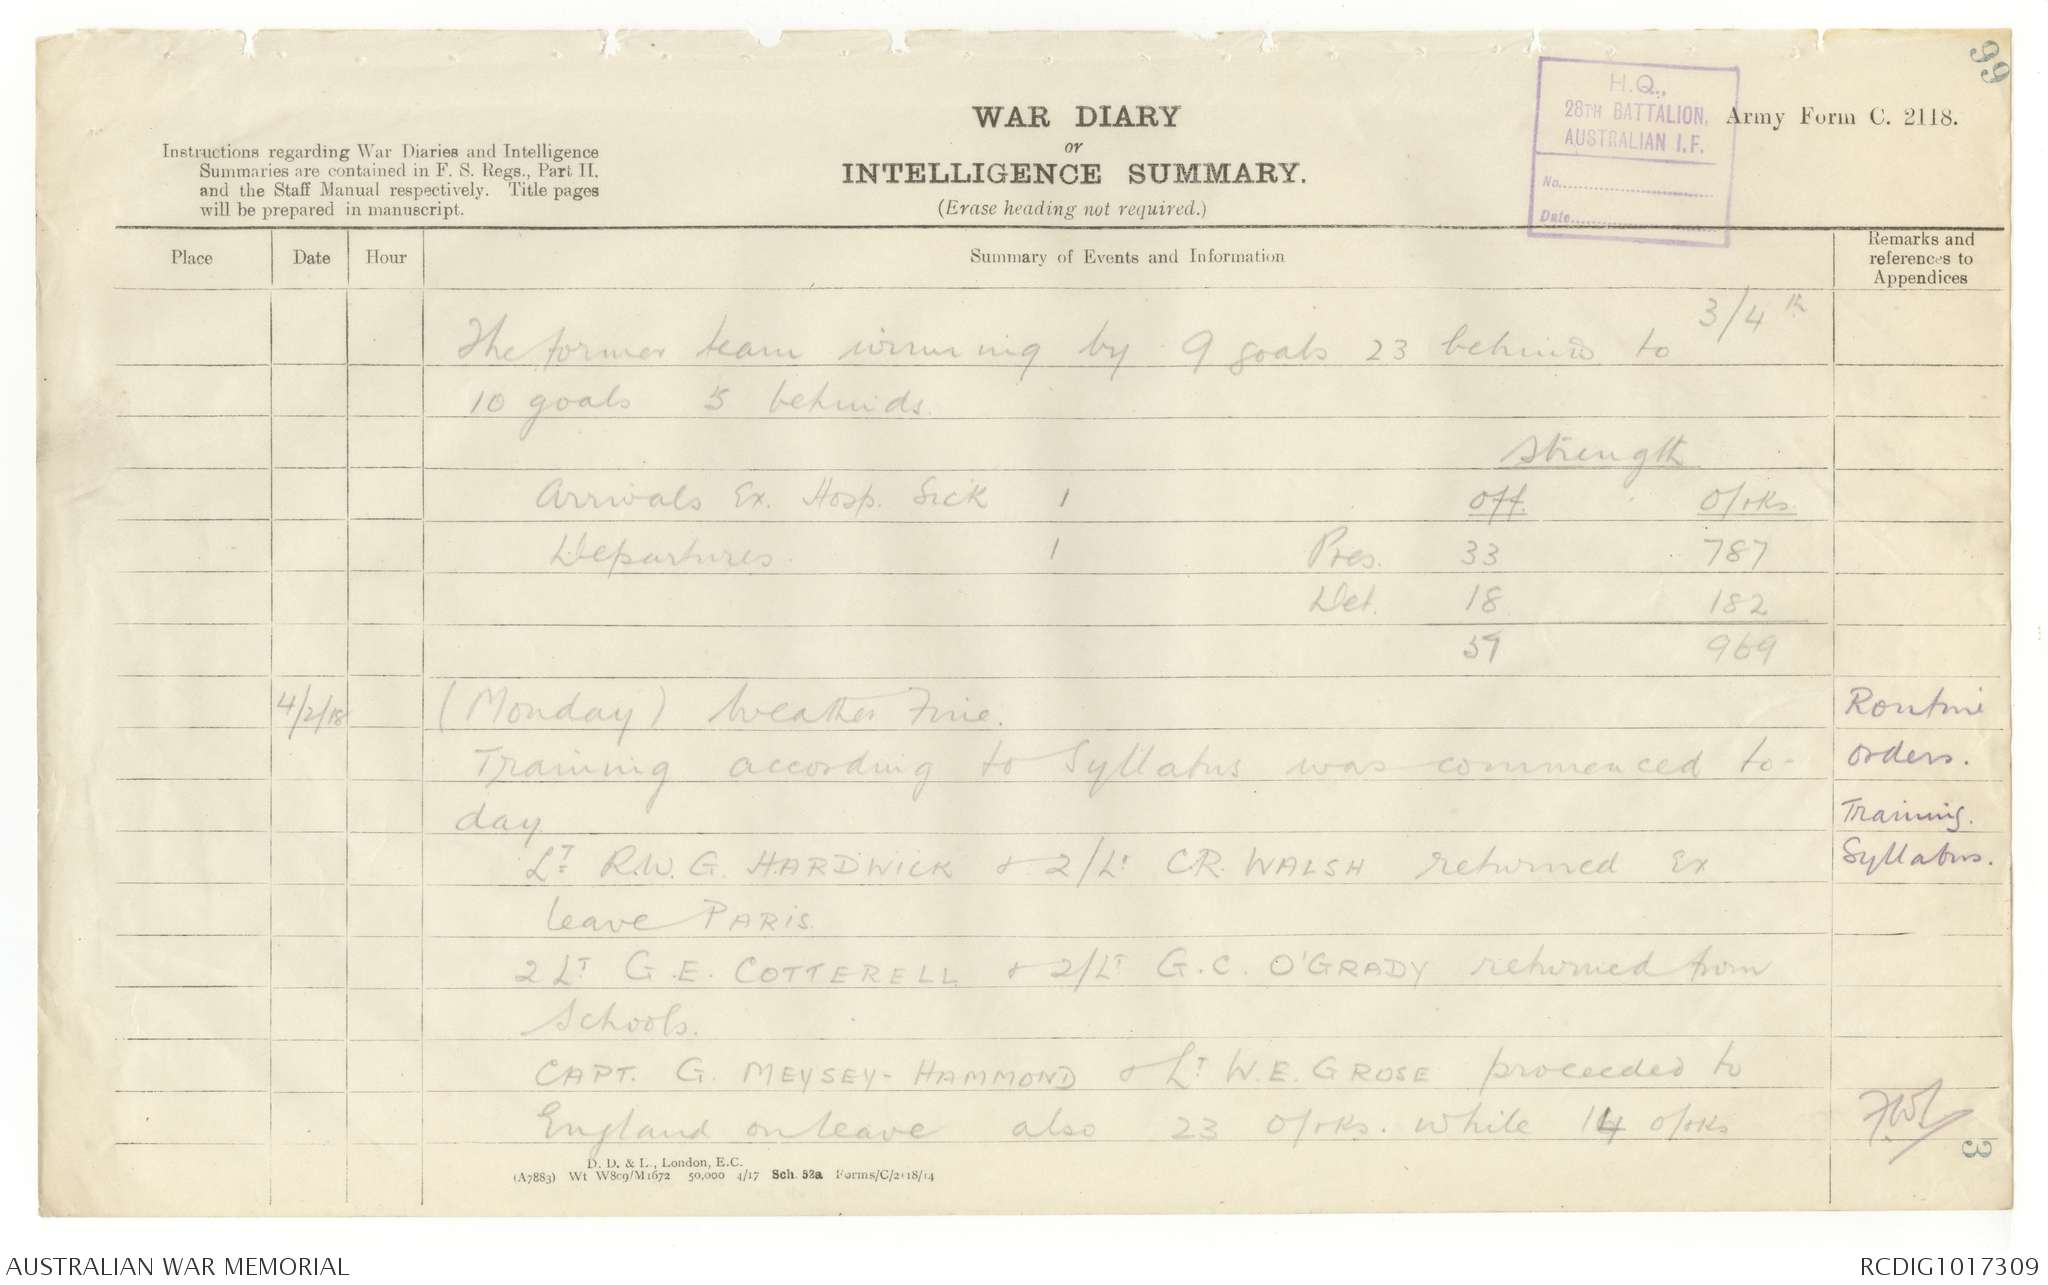 99
H.Q.,
28TH BATTALION,
AUSTRALIAN I.F.
No.
Date
Army Form C. 2118.
WAR DIARY
or
INTELLIGENCE SUMMARY.
(Erase heading not required.)
Instructions regarding War Diaries and Intelligence
Summaries are contained in F. S. Regs., Part II.
and the Staff Manual respectively. Title pages
will be prepared in manuscript.
Place Date Hour Summary of Events and Information Remarks and references to Appendices
3/4th
The former team winning by 9 goals 23 behinds to
10 goals 5 behinds.
Strength
Arrivals Ex. Hosp. Sick 1 Off. O/rks.
Departures. 1 Pres. 33 787
Det. 18 182
51 969
4/2/18 (Monday) Weather Fine. Routine
Training according to Syllabus was commenced to- orders.
day Training.
Lt R.W.G. HARDWICK & 2/Lt C.R. WALSH returned Ex Syllabus.
leave PARIS.
2 Lt G.E. COTTERELL & 2/Lt G.C. O'GRADY returned from
Schools.
CAPT. G. MEYSEY-HAMMOND & Lt W.E. GROSE proceeded to
England on leave also 23 O/rks. while 14 O/rks
3
D. D. & L., London, E.C.
(A7883) Wt W809/M1672 50,000 4/17 Sch. 52a Forms/C/2118/14
AUSTRALIAN WAR MEMORIAL
RCDIG1017309